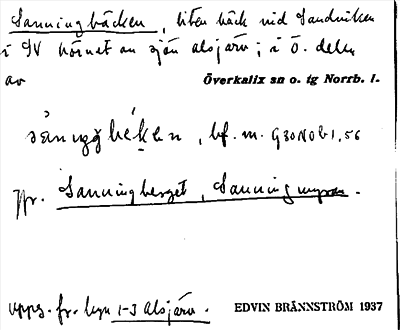 Sanningbäcken, liten bäck vid Sandviken
i SV hörnet av sjön Alsjärv; i ö. delen
av Överkalix sn o. tg Norrb. l.
bf. m.
Jfr. Sanningberget, Sanningmyran.
Upps. fr. byn 1-3 Alsjärv. EDVIN BRÄNNSTRÖM 1937